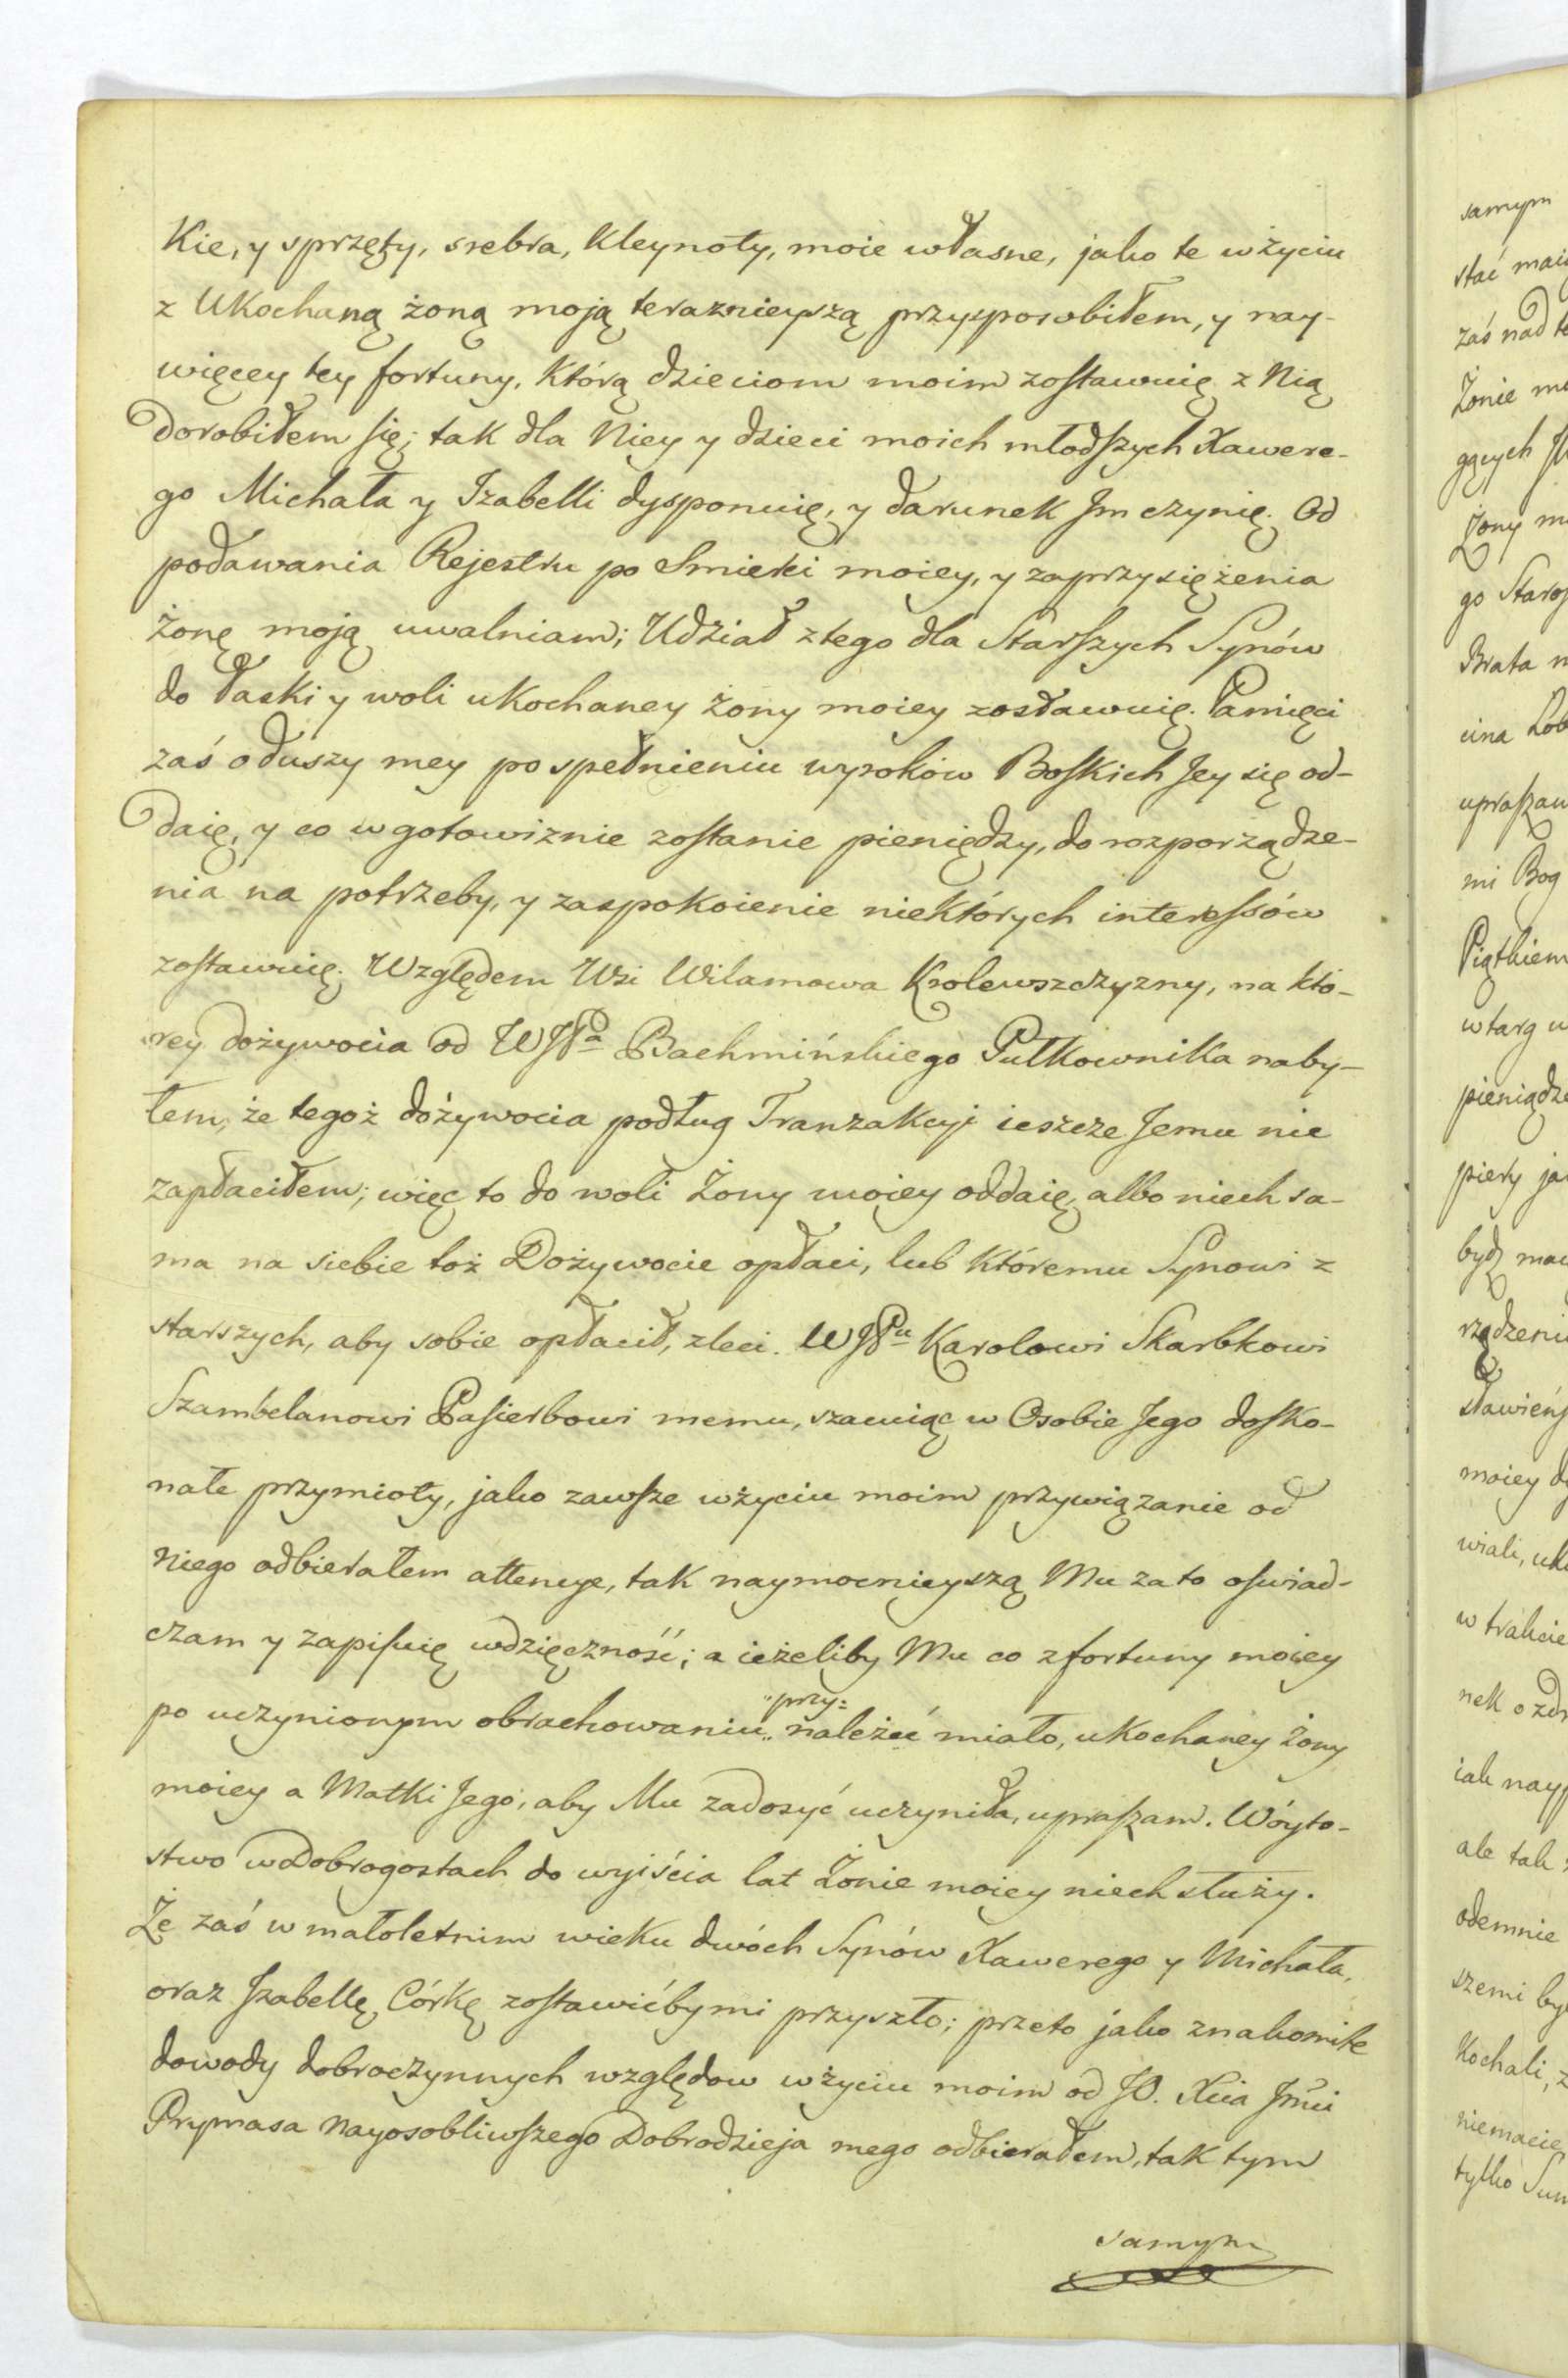 Kie, y sprzęty, srebra, Kleynoty, moie własne, jako te w życiu
z Ukochaną żoną moją teraznieyszą przysposobiłem, y nay-
więcey tey fortuny, Którą dzieciom moim zostawuię z Nią
Dorobiłem się; tak dla Niey y dzieci moich młodszych Xawere-
go Michała y Izabelli dysponuię, y darunek Jm czynię. Od
podawania Rejestru po Smierci moiey, y zaprzysiężenia
żonę moją uwalniam; Udział z tego dla Starszych Synów
do łaski y woli uKochaney żony moiey zostawuię. Pamięci
zaś o duszy mey po spełnieniu wyroków Boskich Jey się od-
Daię, y co w gotowiznie zostanie pieniędzy, do rozporządze-
nia na potrzeby, y zaspokoienie nieKtórych interessów
zostawuię. Względem Wsi Wilamowa Krolewszczyzny, na któ-
rey dożywocia od WJPa Bachmińskiego PułKownika naby-
łem, że tegoż dożywocia podług Tranzakcyi ieszcze Jemu nie
zapłaciłem; więc to do woli Żony moiey oddaię, albo niech sa-
ma na siebie toż Dożywocie opłaci, lub Któremu Synowi z
starszych, aby sobie opłacił, zleci. WJPu Karolowi Skarbkowi
Szambelanowi Pasierbowi memu, szanuiąc w Osobie Jego dosko-
nałe przymioty, jako zawsze w życiu moim przywiązanie od
Niego odbierałem attencye, tak naymocnieyszą Mu za to oswiad-
czam y zapisuię wdzięczność; a ieżeliby Mu co z fortuny moiey
po uczynionym obrachowaniu „przy= należeć miało, uKochaney żony
moiey a Matki Jego, aby Mu zadosyć uczyniła, upraszam. Wóyto-
stwo w Dobrogostach do wyiścia lat Żonie moiey niech służy.
Że zaś w małoletnim wieku dwóch Synów Xawerego y Michała,
oraz Izabellę Córkę zostawićby mi przyszło; przeto jako znakomite
dowody dobroczynnych względow w życiu moim od JO. Xcia Jmci
Prymasa Nayosobliwszego Dobrodzieja mego odbierałem, tak tym
samym
samym
zaś nad
go
Brata
mi Bog
Piątkiem
w targ
w trakcie
ale tak
odemnie
szemi
Kochali,
tylko